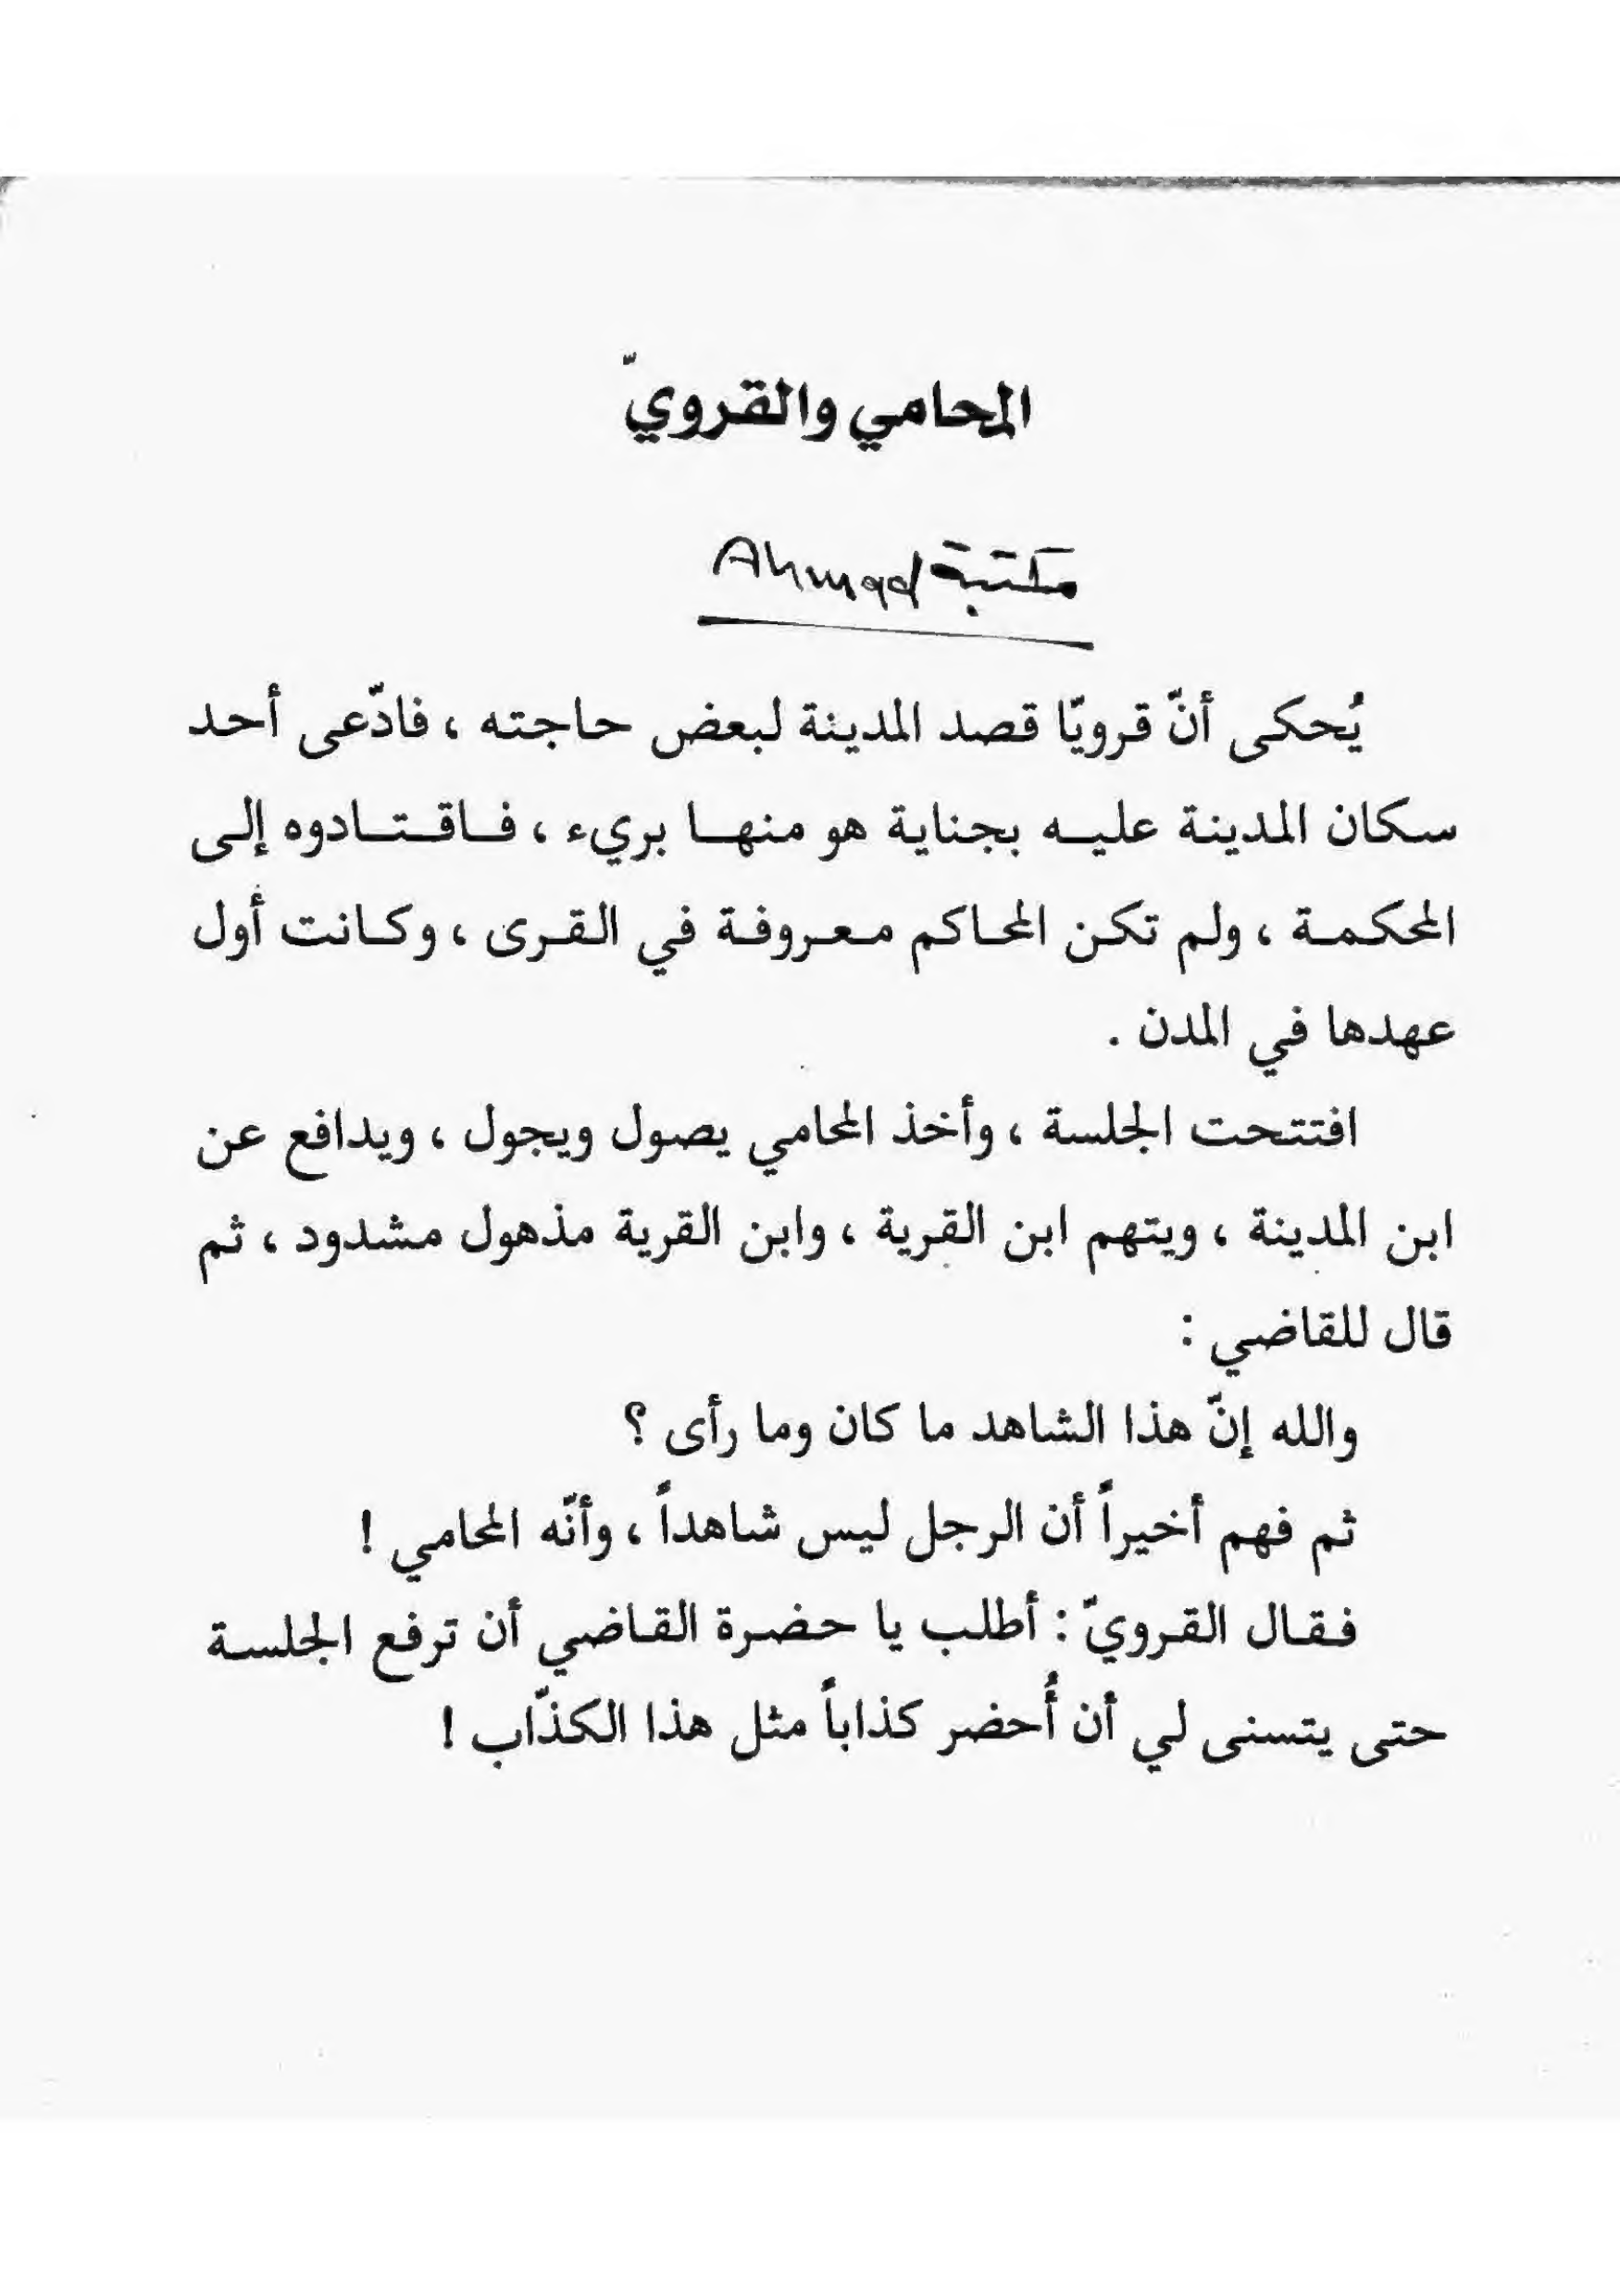 المحامي والقرويّ
مكتبة Ahmad
يُحكى أنّ قرويّا قصد المدينة لبعض حاجته ، فادّعى أحد
سكان المدينة عليه بجناية هو منها بريء ، فاقتادوه إلى
المحكمة ، ولم تكن المحاكم معروفة في القرى ، وكانت أول
عهدها في المدن .
افتتحت الجلسة ، وأخذ المحامي يصول ويجول ، ويدافع عن
ابن المدينة ، ويتهم ابن القرية ، وابن القرية مذهول مشدود ، ثم
قال للقاضي :
والله إنّ هذا الشاهد ما كان وما رأى ؟
ثم فهم أخيراً أن الرجل ليس شاهداً ، وأنّه المحامي !
فقال القرويّ : أطلب يا حضرة القاضي أن ترفع الجلسة
حتى يتسنى لي أن أُحضر كذاباً مثل هذا الكذّاب !